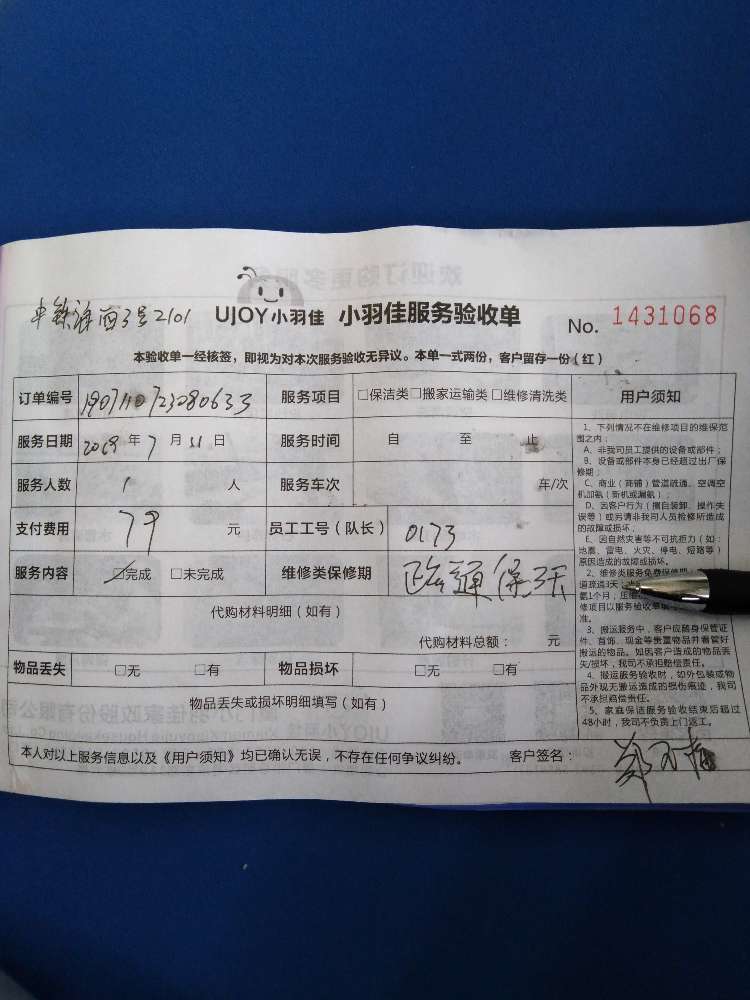 3号2101 UJOY小羽佳 小羽佳服务验收单 No. 1431068
本验收单一经核签，即视为对本次服务验收无异议。本单一式两份，客户留存一份（红）
订单编号 服务项目 □保洁类□搬家运输类□维修清洗类 用户须知
服务日期 2019年7月11日 服务时间 自 至 止
服务人数 1 人 服务车次 车/次
支付费用 79 元 员工工号（队长） 0173
服务内容 □完成 □未完成 维修类保修期 保3天
代购材料明细（如有）
代购材料总额： 元
物品丢失 □无 □有 物品损坏 □无 □有
物品丢失或损坏明细填写（如有）
1、下列情况不在维修项目的维保范
围之内：
A、非我司员工提供的设备或部件；
B、设备或部件本身已经超过出厂保
修期；
C、商业（商铺）管道疏通、空调空
机加氨（新机或漏氨）；
D、因客户行为（擅自装卸、操作失
误等）或另请非我司人员检修所造成
的故障或损坏；
E、因自然灾害等不可抗拒力（如：
地震、雷电、火灾、停电、短路等）
原因造成的故障或损坏。
2、维修类服务免费保修期
道疏通3天；
氨1个月，压缩
修项目以服务验收单填写
准。
3、搬运服务中，客户应随身保管证
件、首饰、现金等贵重物品并看管好
搬运的物品。如因客户造成的物品丢
失/损坏，我司不承担赔偿责任。
4、搬运服务验收时，如外包装或物
品外观无搬运造成的损伤痕迹，我司
不承担赔偿责任。
5、家庭保洁服务验收结束后超过
48小时，我司不负责上门返工。
本人对以上服务信息以及《用户须知》均已确认无误，不存在任何争议纠纷。 客户签名：